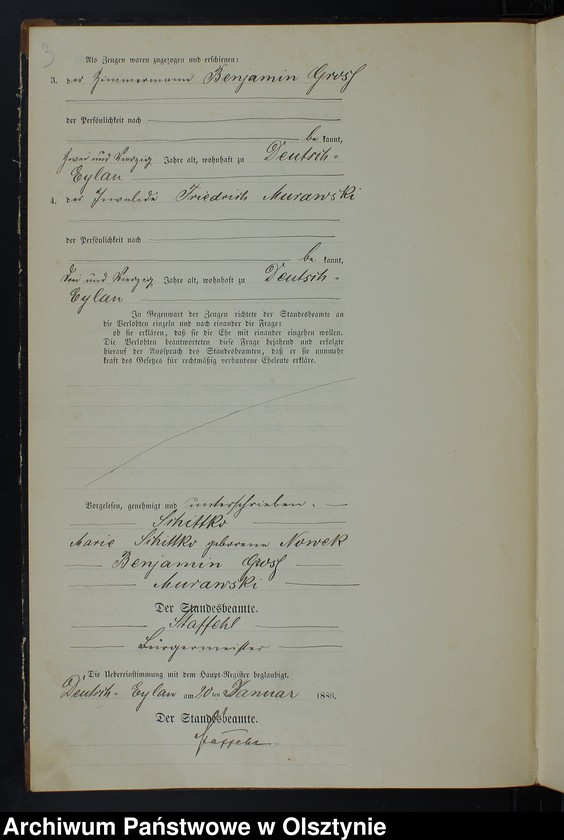 3
Als Zeugen waren zugezogen und erschienen:
3. der Zimmermann Benjamin Grosz
der Persönlichkeit nach
be kannt,
zwei und vierzig Jahre alt, wohnhaft zu Deutsch-
Eylau
4. der Invalide Friedrich Murawski
der Persönlichkeit nach
be kannt,
drei und vierzig Jahre alt, wohnhaft zu Deutsch-
Eylau
In Gegenwart der Zeugen richtete der Standesbeamte an
die Verlobten einzeln und nach einander die Frage:
ob sie erklären, daß sie die Ehe mit einander eingehen wollen.
Die Verlobten beantworteten diese Frage bejahend und erfolgte
hierauf der Ausspruch des Standesbeamten, daß er sie nunmehr
kraft des Gesetzes für rechtmäßig verbundene Eheleute erkläre.
Vorgelesen, genehmigt und unterschrieben.
Schittko
Marie Schittko geborene Nowek
Benjamin Grosz
Murawski
Der Standesbeamte.
Staffehl
Bürgermeister
Die Uebereinstimmung mit dem Haupt-Register beglaubigt.
Deutsch-Eylau am 20ten Januar 1886.
Der Standesbeamte.
Staffehl
Archiwum Państwowe w Olsztynie